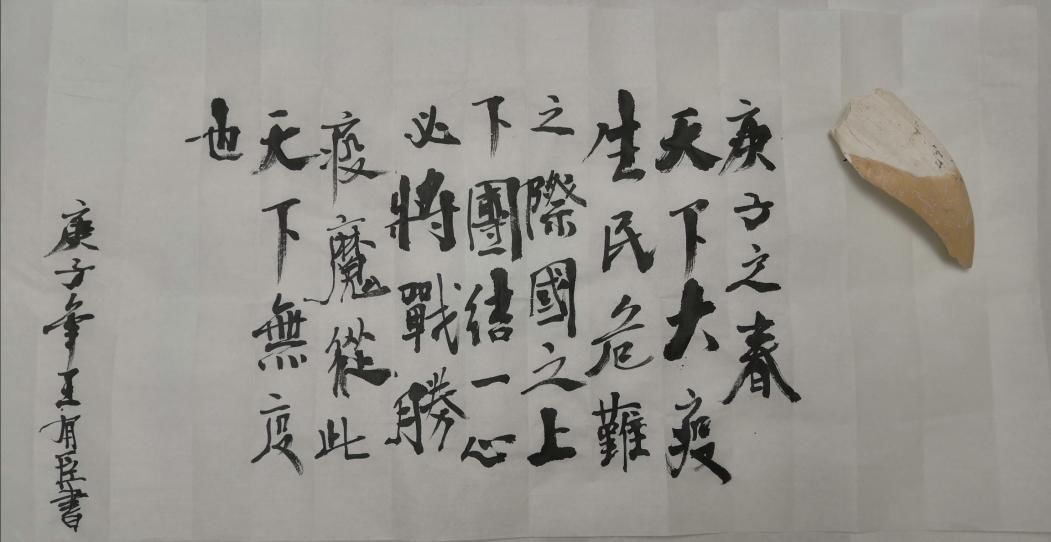 庚子之春
天下大疫
生民危難
之際國之上
下團结一心
必將戰勝
疫魔從此
天下無疫
也
庚子年王有臣書